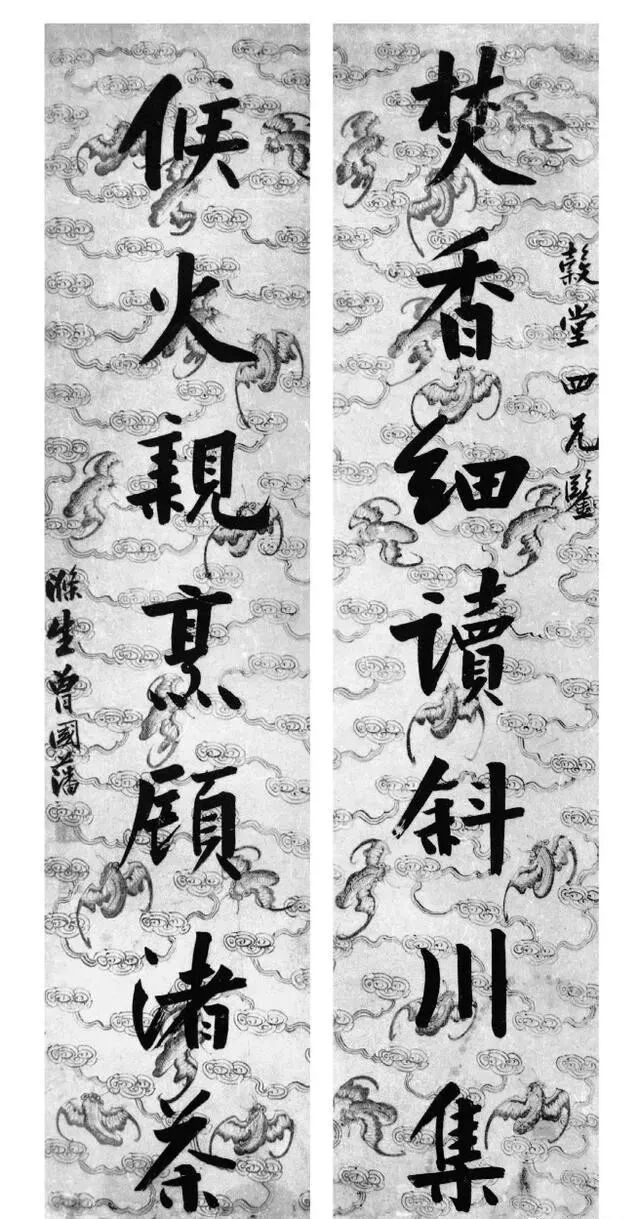 焚香細讀斜川集
穀堂四兄鑒
候火親烹顧渚茶
滌生曾國藩